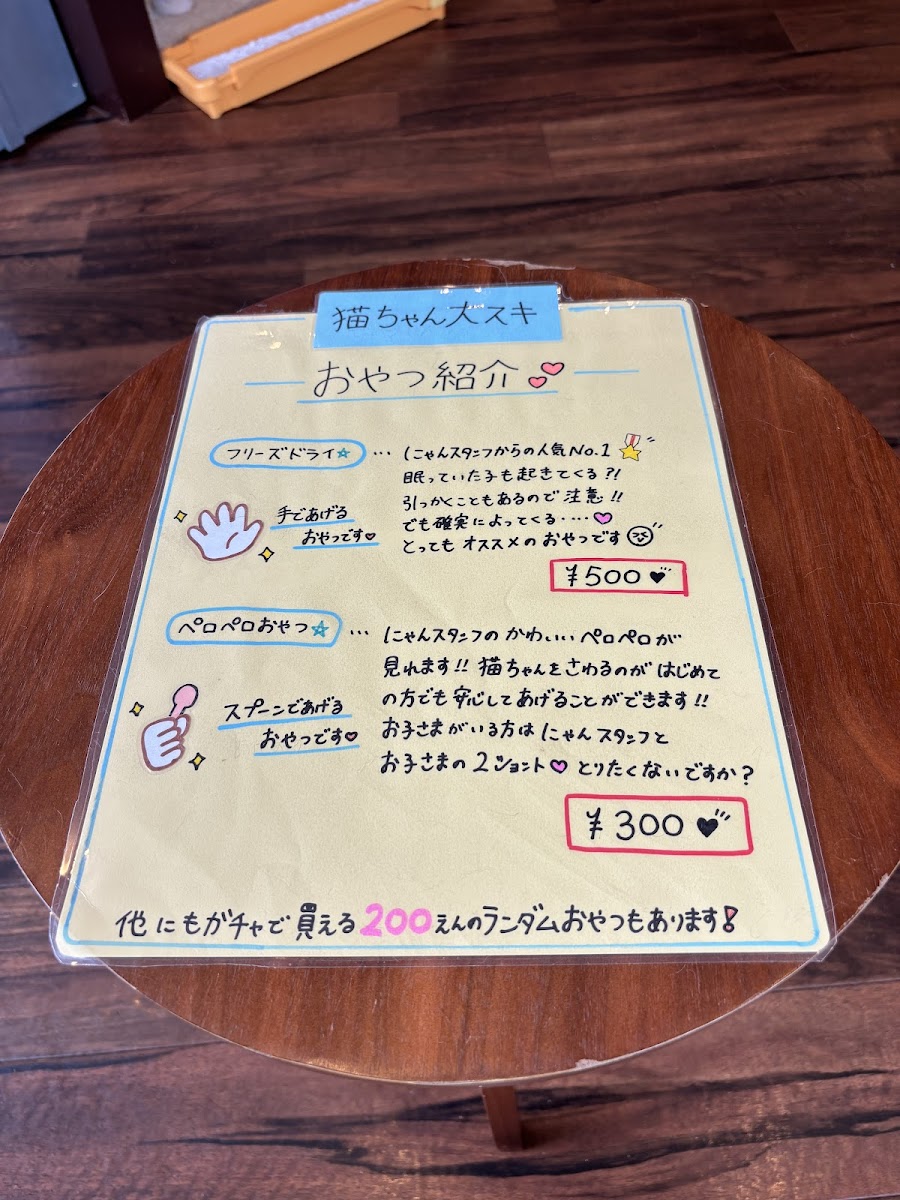 猫ちゃん大スキ
おやつ紹介
フリーズドライ☆ … にゃんスタッフからの人気No.1
眠っていた子も起きてくる?!
引っかくこともあるので注意!!
でも確実によってくる・・・・♥
とってもオススメのおやつです
手であげる
おやつです♥
¥500♥
ペロペロおやつ☆ … にゃんスタッフのかわいいペロペロが
見れます!! 猫ちゃんをさわるのがはじめて
の方でも安心してあげることができます!!
お子さまがいる方はにゃんスタッフと
お子さまの2ショット♥とりたくないですか?
スプーンであげる
おやつです♥
¥300♥
他にもガチャで買える200えんのランダムおやつもあります!